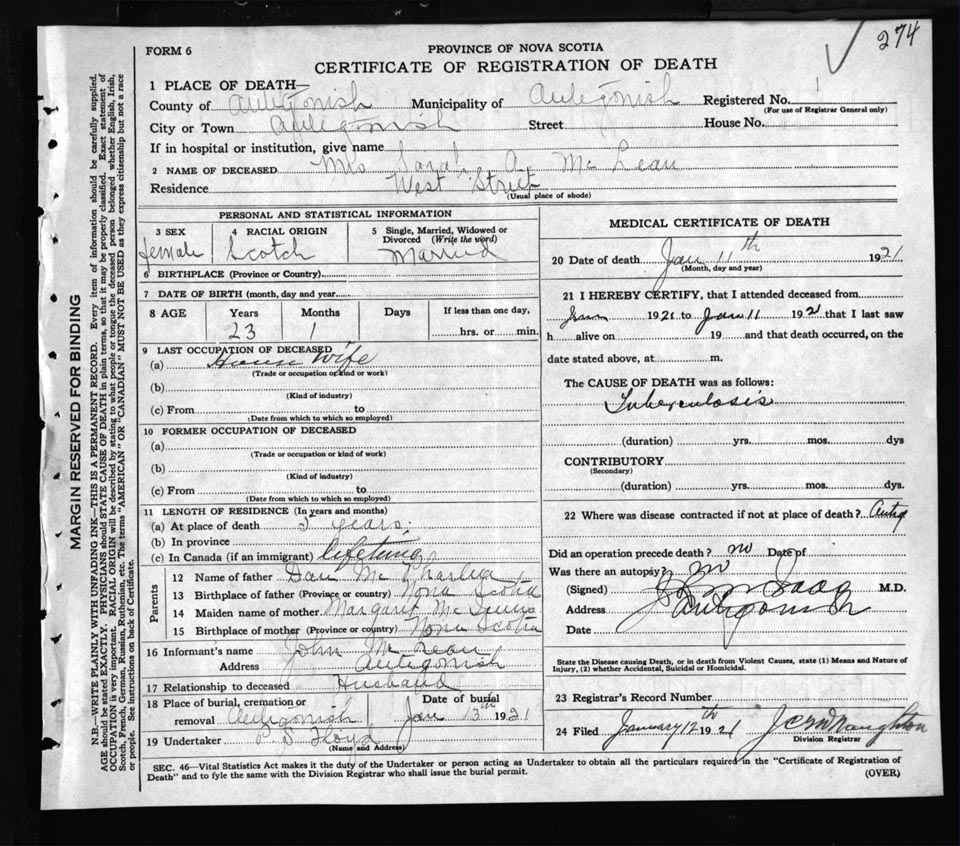 274
FORM 6
PROVINCE OF NOVA SCOTIA
CERTIFICATE OF REGISTRATION OF DEATH
1 PLACE OF DEATH—
County of Antigonish Municipality of Antigonish Registered No.
(For use of Registrar General only)
City or Town Antigonish Street House No.
If in hospital or institution, give name
2 NAME OF DECEASED Mrs Sarah A. McLean
Residence West Street
(Usual place of abode)
PERSONAL AND STATISTICAL INFORMATION
3 SEX female
4 RACIAL ORIGIN Scotch
5 Single, Married, Widowed or Divorced (Write the word) Married
6 BIRTHPLACE (Province or Country)
7 DATE OF BIRTH (month, day and year)
8 AGE Years 23 Months 1 Days If less than one day, hrs. or min.
9 LAST OCCUPATION OF DECEASED
(a) House Wife
(Trade or occupation or kind or work)
(b)
(Kind of industry)
(c) From to
(Date from which to which so employed)
10 FORMER OCCUPATION OF DECEASED
(a)
(Trade or occupation or kind of work)
(b)
(Kind of industry)
(c) From to
(Date from which to which so employed)
11 LENGTH OF RESIDENCE (In years and months)
(a) At place of death years
(b) In province
(c) In Canada (if an immigrant) lifetime
Parents
12 Name of father Dan
13 Birthplace of father (Province or country) Nova Scotia
14 Maiden name of mother Margaret
15 Birthplace of mother (Province or country) Nova Scotia
16 Informant's name John McLean
Address Antigonish
17 Relationship to deceased Husband
18 Place of burial, cremation or removal Antigonish Date of burial Jan 13th 1921
19 Undertaker P S Floyd
(Name and Address)
MEDICAL CERTIFICATE OF DEATH
20 Date of death Jan 11th 1921
(Month, day and year)
21 I HEREBY CERTIFY, that I attended deceased from
Jan 1921 to Jan 11 1921 that I last saw
h alive on 19 and that death occurred, on the
date stated above, at m.
The CAUSE OF DEATH was as follows:
Tuberculosis
(duration) yrs. mos. dys
CONTRIBUTORY
(Secondary)
(duration) yrs. mos. dys.
22 Where was disease contracted if not at place of death? Antig
Did an operation precede death? no Date of
Was there an autopsy? no
(Signed) M.D.
Address Antigonish
Date
State the Disease causing Death, or in death from Violent Causes, state (1) Means and Nature of
Injury, (2) whether Accidental, Suicidal or Homicidal.
23 Registrar's Record Number
24 Filed January 12th 1921
Division Registrar
SEC. 46—Vital Statistics Act makes it the duty of the Undertaker or person acting as Undertaker to obtain all the particulars required in the "Certificate of Registration of
Death" and to fyle the same with the Division Registrar who shall issue the burial permit.
(OVER)
MARGIN RESERVED FOR BINDING
N.B.—WRITE PLAINLY WITH UNFADING INK—THIS IS A PERMANENT RECORD. Every item of information should be carefully supplied.
AGE should be stated EXACTLY. PHYSICIANS should STATE CAUSE OF DEATH in plain terms, so that it may be properly classified. Exact statement of
OCCUPATION is very important. RACIAL ORIGIN will be described by stating to what people or tongue the deceased person belonged whether English, Irish,
Scotch, French, German, Russian, Ruthenian, etc. The terms "AMERICAN" OR "CANADIAN" MUST NOT BE USED as they express citizenship but not a race
or people. See instructions on back of Certificate.